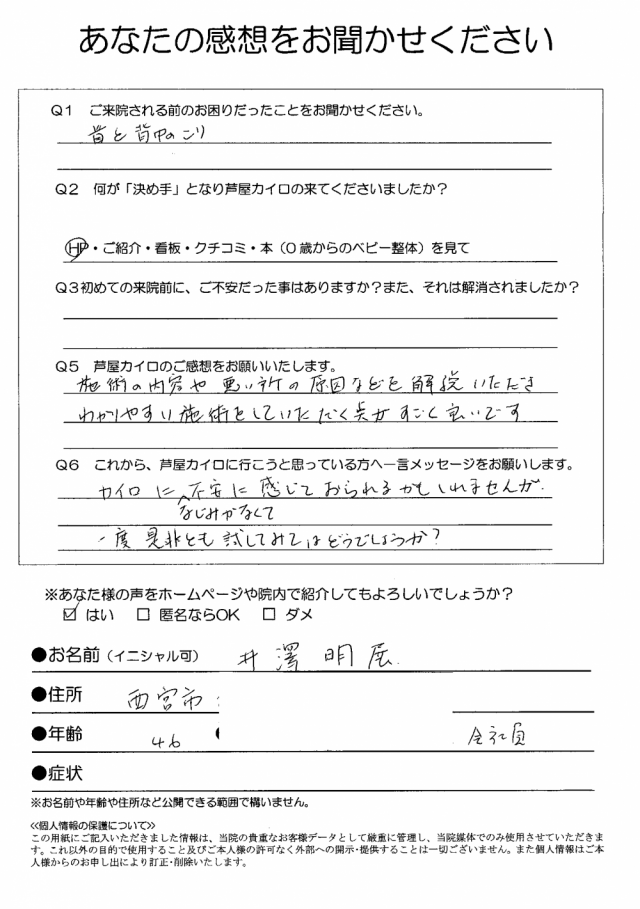 あなたの感想をお聞かせください
Q1 ご来院される前のお困りだったことをお聞かせください。
首と背中のこり
Q2 何が「決め手」となり芦屋カイロの来てくださいましたか？
HP・ご紹介・看板・クチコミ・本（0歳からのベビー整体）を見て
Q3初めての来院前に、ご不安だった事はありますか？また、それは解消されましたか？
Q5 芦屋カイロのご感想をお願いいたします。
施術の内容や悪い所の原因などを解説いただき
わかりやすい施術をしていただく点がすごく良いです
Q6 これから、芦屋カイロに行こうと思っている方へ一言メッセージをお願いします。
カイロに不安に感じておられるかもしれませんが、
なじみがなくて
一度是非とも試してみてはどうでしょうか？
※あなた様の声をホームページや院内で紹介してもよろしいでしょうか？
☑ はい □ 匿名ならOK □ ダメ
●お名前（イニシャル可） 井澤明展
●住所 西宮市
●年齢 46 会社員
●症状
※お名前や年齢や住所など公開できる範囲で構いません。
≪個人情報の保護について≫
この用紙にご記入いただきました情報は、当院の貴重なお客様データとして厳重に管理し、当院媒体でのみ使用させていただきま
す。これ以外の目的で使用すること及びご本人様の許可なく外部への開示・提供することは一切ございません。また個人情報はご本
人様からのお申し出により訂正・削除いたします。